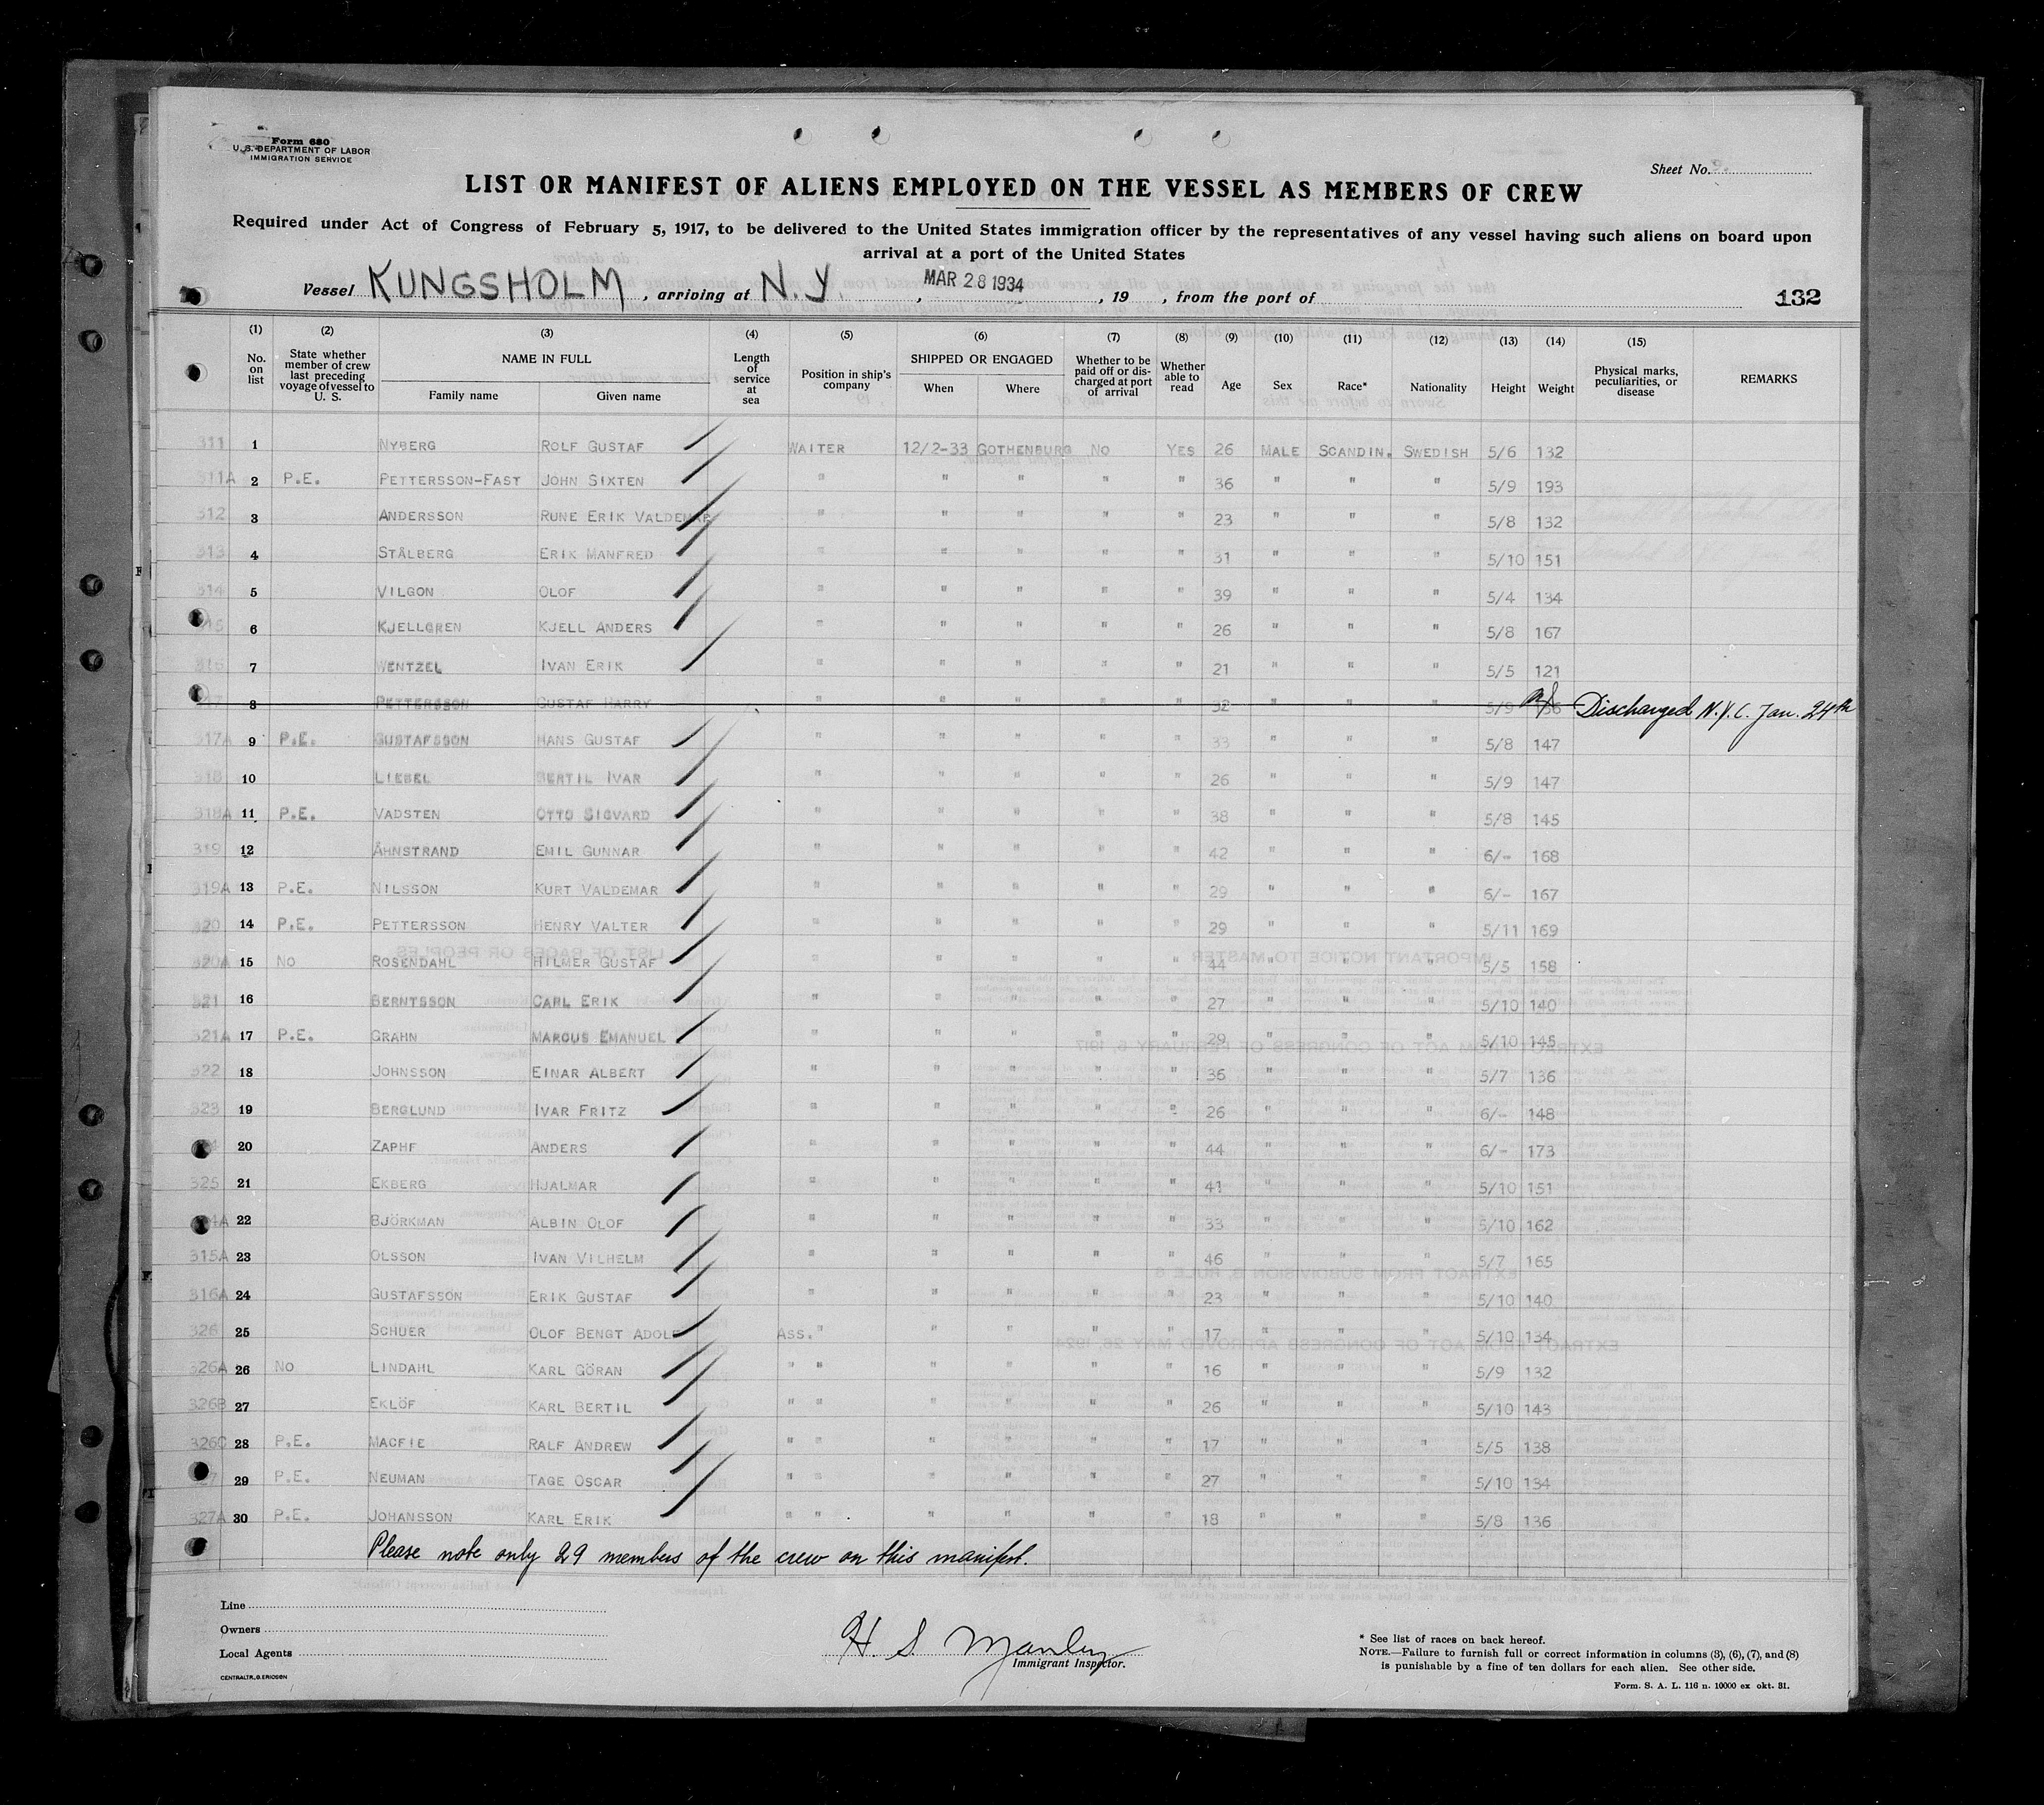 Form 680
U.S. DEPARTMENT OF LABOR
IMMIGRATION SERVICE
Sheet No.
LIST OR MANIFEST OF ALIENS EMPLOYED ON THE VESSEL AS MEMBERS OF CREW
Required under Act of Congress of February 5, 1917, to be delivered to the United States immigration officer by the representatives of any vessel having such aliens on board upon
arrival at a port of the United States
Vessel KUNGSHOLM, arriving at N.Y., MAR 28 1934, 19 , from the port of 132
(1) (2) (3) (4) (5) (6) (7) (8) (9) (10) (11) (12) (13) (14) (15)
No. on list State whether member of crew last preceding voyage of vessel to U. S. NAME IN FULL Family name Given name Length of service at sea Position in ship's company SHIPPED OR ENGAGED When Where Whether to be paid off or discharged at port of arrival Whether able to read Age Sex Race* Nationality Height Weight Physical marks, peculiarities, or disease REMARKS
311 1 NYBERG ROLF GUSTAF WAITER 12/2-33 GOTHENBURG NO YES 26 MALE SCANDIN. SWEDISH 5/6 132
311A 2 P.E. PETTERSSON-FAST JOHN SIXTEN " " " " " 36 " " " 5/9 193
312 3 ANDERSSON RUNE ERIK VALDEMAR " " " " " 23 " " " 5/8 132
313 4 STÅLBERG ERIK MANFRED " " " " " 31 " " " 5/10 151
314 5 VILGON OLOF " " " " " 39 " " " 5/4 134
315 6 KJELLGREN KJELL ANDERS " " " " " 26 " " " 5/8 167
316 7 WENTZEL IVAN ERIK " " " " " 21 " " " 5/5 121
317 8 PETTERSSON GUSTAF HARRY " " " " " 32 " " " 5/9 Discharged N.Y.C. Jan. 24th
317A 9 P.E. GUSTAFSSON HANS GUSTAF " " " " " 33 " " " 5/8 147
318 10 LIEBEL BERTIL IVAR " " " " " 26 " " " 5/9 147
318A 11 P.E. VADSTEN OTTO SIGVARD " " " " " 38 " " " 5/8 145
319 12 ÅHNSTRAND EMIL GUNNAR " " " " " 42 " " " 6/- 168
319A 13 P.E. NILSSON KURT VALDEMAR " " " " " 29 " " " 6/- 167
320 14 P.E. PETTERSSON HENRY VALTER " " " " " 29 " " " 5/11 169
320A 15 NO ROSENDAHL HILMER GUSTAF " " " " " 44 " " " 5/5 158
321 16 BERNTSSON CARL ERIK " " " " " 27 " " " 5/10 140
321A 17 P.E. GRAHN MARCUS EMANUEL " " " " " 29 " " " 5/10 145
322 18 JOHNSSON EINAR ALBERT " " " " " 36 " " " 5/7 136
323 19 BERGLUND IVAR FRITZ " " " " " 26 " " " 6/- 148
20 ZAPHF ANDERS " " " " " 44 " " " 6/- 173
325 21 EKBERG HJALMAR " " " " " 41 " " " 5/10 151
22 BJÖRKMAN ALBIN OLOF " " " " " 33 " " " 5/10 162
315A 23 OLSSON IVAN VILHELM " " " " " 46 " " " 5/7 165
316A 24 GUSTAFSSON ERIK GUSTAF " " " " " 23 " " " 5/10 140
326 25 SCHUER OLOF BENGT ADOLF ASS. " " " " " 17 " " " 5/10 134
326A 26 NO LINDAHL KARL GÖRAN " " " " " " 16 " " " 5/9 132
326B 27 EKLÖF KARL BERTIL " " " " " " 26 " " " 5/10 143
326C 28 P.E. MACFIE RALF ANDREW " " " " " " 17 " " " 5/5 138
29 P.E. NEUMAN TAGE OSCAR " " " " " " 27 " " " 5/10 134
327A 30 P.E. JOHANSSON KARL ERIK " " " " " " 18 " " " 5/8 136
Please note only 29 members of the crew on this manifest.
Line
Owners
Local Agents
CENTRALTR., G. ERICSON
H. S. Manley
Immigrant Inspector.
* See list of races on back hereof.
NOTE.—Failure to furnish full or correct information in columns (3), (6), (7), and (8)
is punishable by a fine of ten dollars for each alien. See other side.
Form. S. A. L. 116 n. 10000 ex okt. 31.